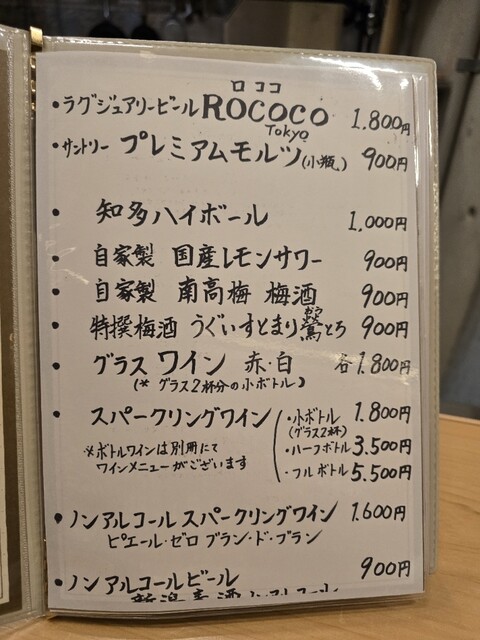 ロココ
・ラグジュアリービール ROCOCO Tokyo 1.800円
・サントリー プレミアムモルツ(小瓶) 900円
・知多ハイボール 1,000円
・自家製 国産レモンサワー 900円
・自家製 南高梅 梅酒 900円
・特撰梅酒 うぐいすとまり鶯とろ 900円
・グラス ワイン 赤・白 各1.800円
(※ グラス2杯分の小ボトル)
・スパークリングワイン ・小ボトル 1.800円
(グラス2杯)
・ハーフボトル 3.500円
・フルボトル 5.500円
※ボトルワインは別冊にて
ワインメニューがございます
・ノンアルコール スパークリングワイン 1.600円
ピエール・ゼロ ブラン・ド・ブラン
・ノンアルコールビール 900円
新潟麦酒ノンアルコール